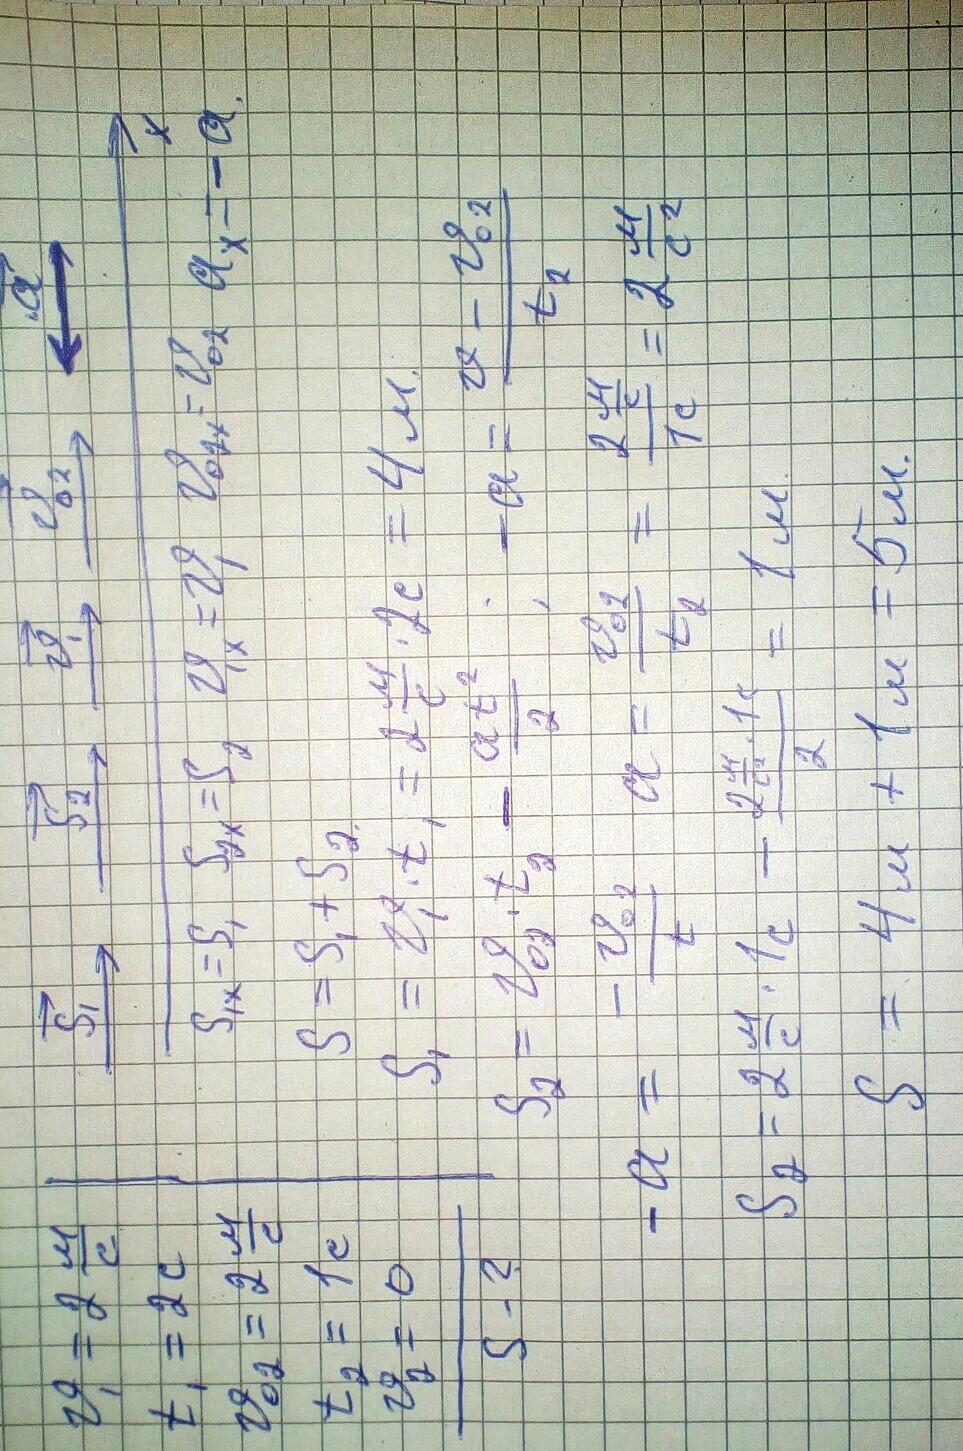 v₁ = 2 м/с
t₁ = 2с
v₀₂ = 2 м/с
t₂ = 1с
v₂ = 0
S - ?
S₁ S₂ v₁ v₀₂ a
x
S₁ₓ = S₁ S₂ₓ = S₂ v₁ₓ = v₁ v₀₂ₓ = v₀₂ aₓ = - a.
S = S₁ + S₂.
S₁ = v₁ · t₁ = 2 м/с · 2с = 4 м.
S₂ = v₀₂ · t₂ - at²/2 ; -a = v - v₀₂/t₂
-a = - v₀₂/t a = v₀₂/t₂ = 2 м/с/1с = 2 м/с²
S₂ = 2 м/с · 1с - 2 м/с² · 1с/2 = 1 м.
S = 4м + 1м = 5м.